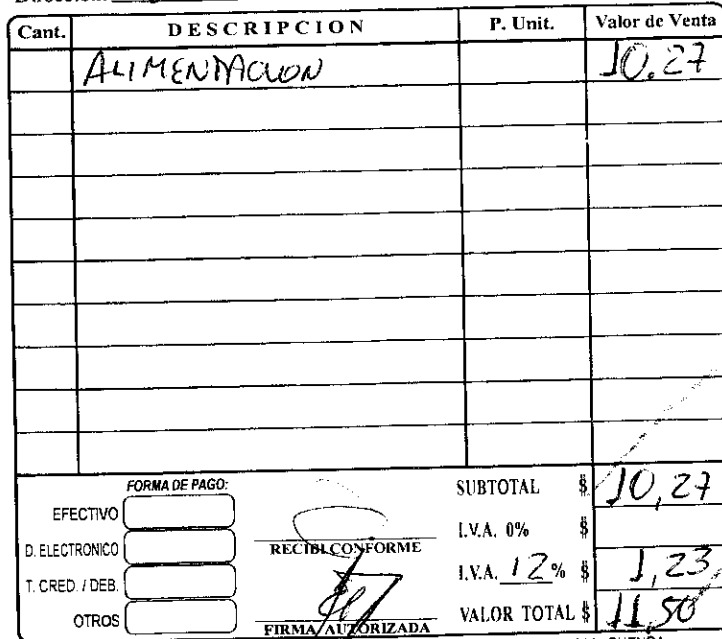 Cant. DESCRIPCION P. Unit. Valor de Venta
ALIMENTACION 10.27
FORMA DE PAGO:
EFECTIVO
D. ELECTRONICO
T. CRED. / DEB.
OTROS
RECIBI CONFORME
FIRMA AUTORIZADA
SUBTOTAL $ 10,27
I.V.A. 0% $
I.V.A. 12% $ 1,23
VALOR TOTAL $ 11,50